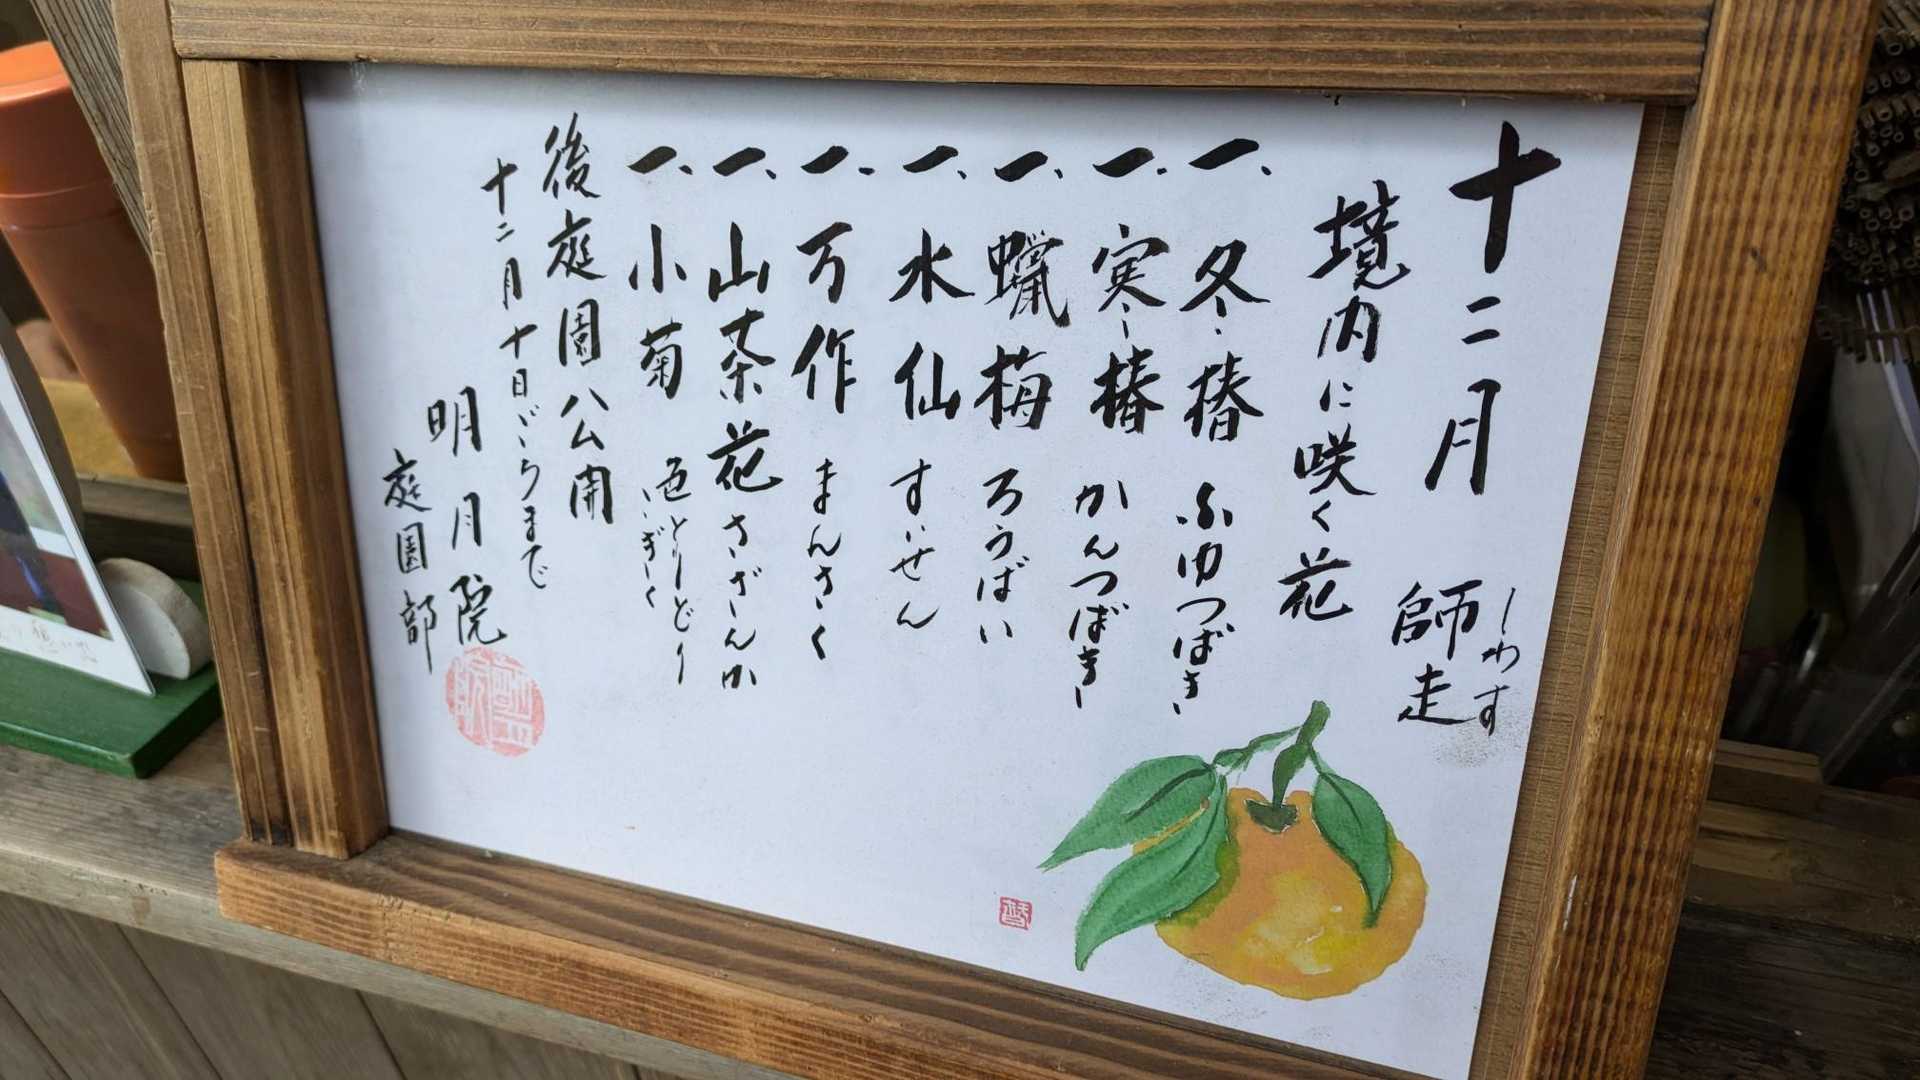 十二月 師走 しわす
境内に咲く花
一、冬椿 ふゆつばき
一、寒椿 かんつばき
一、蝋梅 ろうばい
一、水仙 すいせん
一、万作 まんさく
一、山茶花 さざんか
一、小菊 色とりどり こぎく
後庭園公開
十二月十日ごろまで
明月院
庭園部